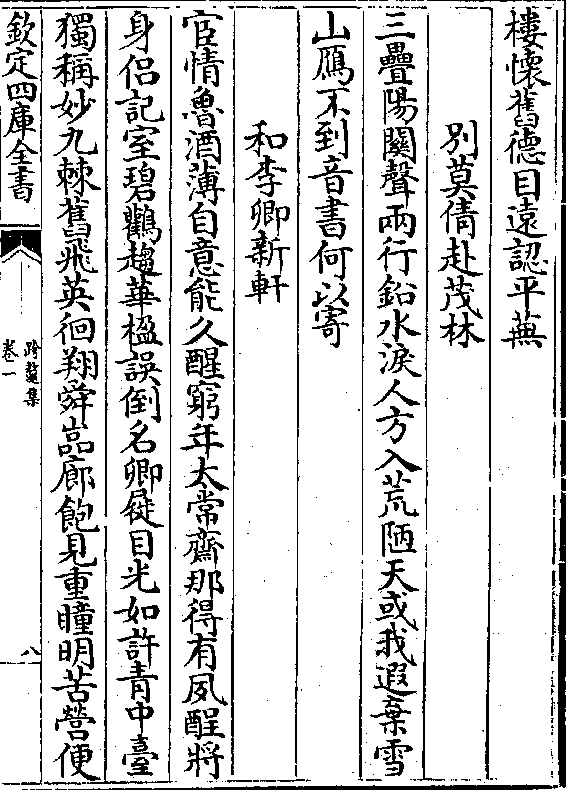 樓懷舊德目遠認平蕪
別莫倩赴茂林
三疊陽關聲兩行鉛水淚人方入荒陋天或我遐棄雪
山鴈不到音書何以寄
和李卿新軒
宦情魯酒薄自意能久醒窮年太常齋那得有夙酲將
身侣記室碧鸛趨華楹誤倒名卿屣目光如許青中臺
獨稱妙九棘舊飛英徊翔舜嵓廊飽見重瞳明苦營便
欽定四庫全書
跨鼇集
卷一
八